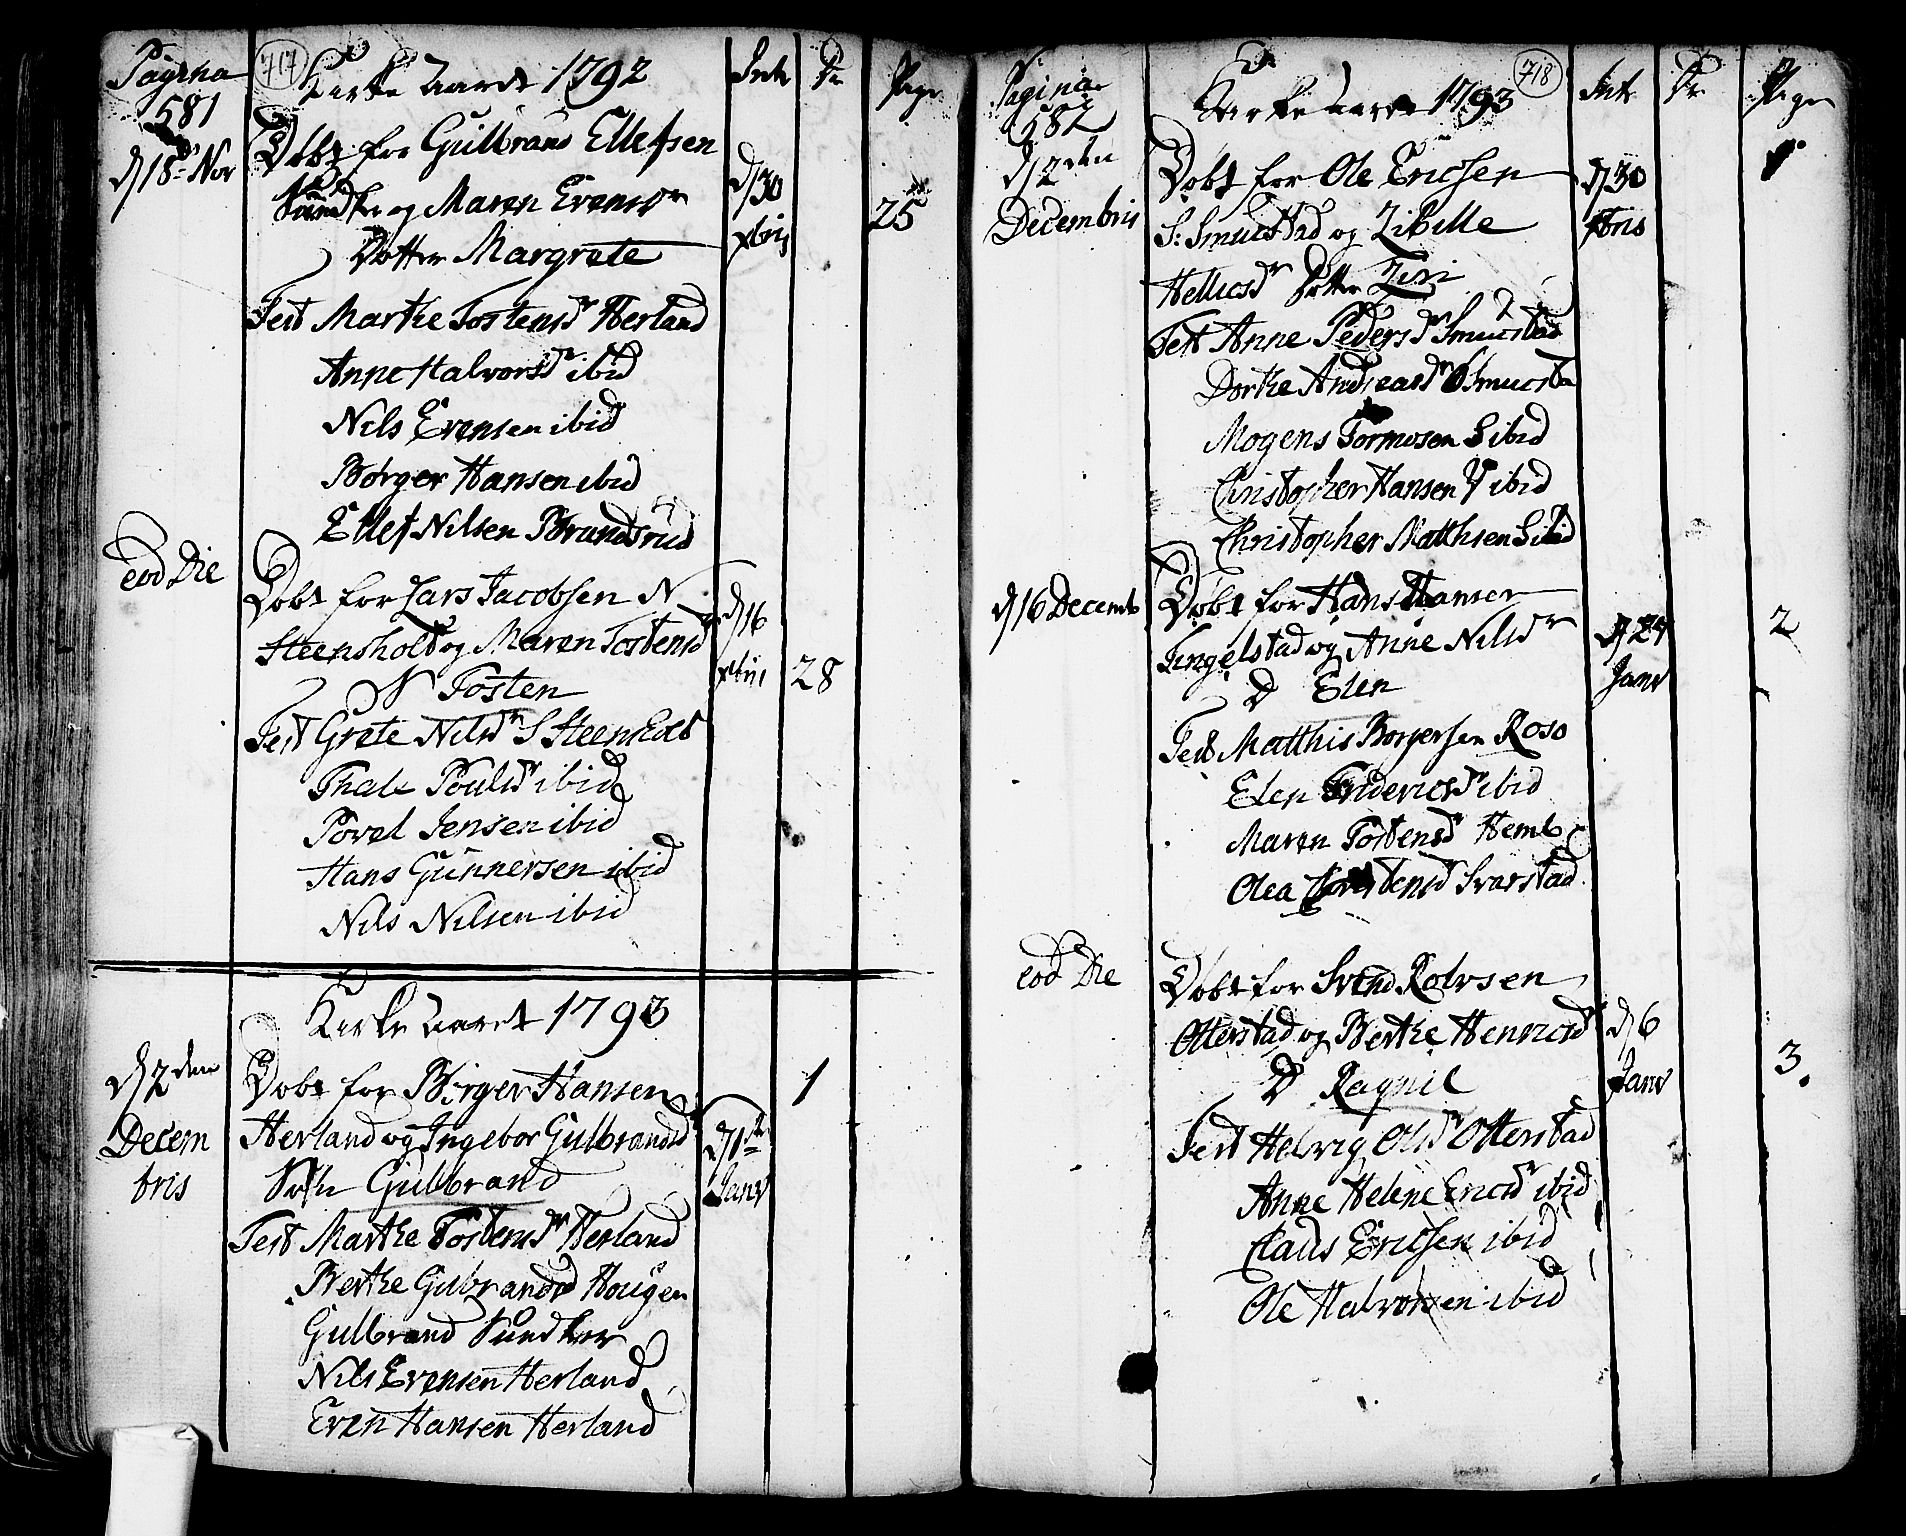 Pagina
581
717
Kirke Aaret 1792
Intr
Dr
Piger
d/18de Nov
Døbt for Gulbrand Ellefsen
Sundker og Maren Evensdr
Dotter Margrete
d/30
xbris
25
Test Marthe Tostensdr Herland
Anne Halvorsdr ibid
Nils Evensen ibid
Børger Hansen ibid
Ellef Nilsen Brandsrud
eod Die
Døbt for Lars Jacobsen N
Steensholt og Maren Tostensdr
S Tosten
d/16
xbris
28
Test Grete Nilsdr S Steensholt
Thale Poulsdr ibid
Povel Jensen ibid
Hans Gunnersen ibid
Nils Nilsen ibid
Kirke Aaret 1793
d/2den
Decem
bris
Døbt for Børger Hansen
Herland og Ingebor Gulbrandsd
Søn Gulbrand
d/1ste
Janv
1
Test Marthe Tostensdr Herland
Berthe Gulbrandsd Hougen
Gulbrand Sundker
Nils Evensen Herland
Even Hansen Herland
Pagina
582
718
Kirke Aaret 1793
Intr
Dr
Piger
d/2den
Decembris
Døbt for Ole Ericsen
S: Smucstad og Zibille
Hellicsdr Dotter Ziri
d/30
xbris
1
Test Anne Pedersdr Smucstad
Dorthe Andreasdr Smucsta
Mogens Tormosen S ibid
Christopher Hansen ibid
Christopher Matthsen S ibid
d/16 Decemb
Døbt for Hans Hansen
Tingelstad og Anne Nilsdr
D Elen
d/27
Janv
2
Test Matthis Borgersen Roso
Elen Fridericsdr ibid
Maren Tostensdr Hemb
Olea Torstensd Svarstad
eod Die
Døbt for Svend Rolvsen
Otterstad og Berthe Henricsd
D Ragnil
d/6
Janv
3.
Test Helvig Olsdr Otterstad
Anne Helene Ericsdr ibid
Claus Ericsen ibid
Ole Halvorsen ibid